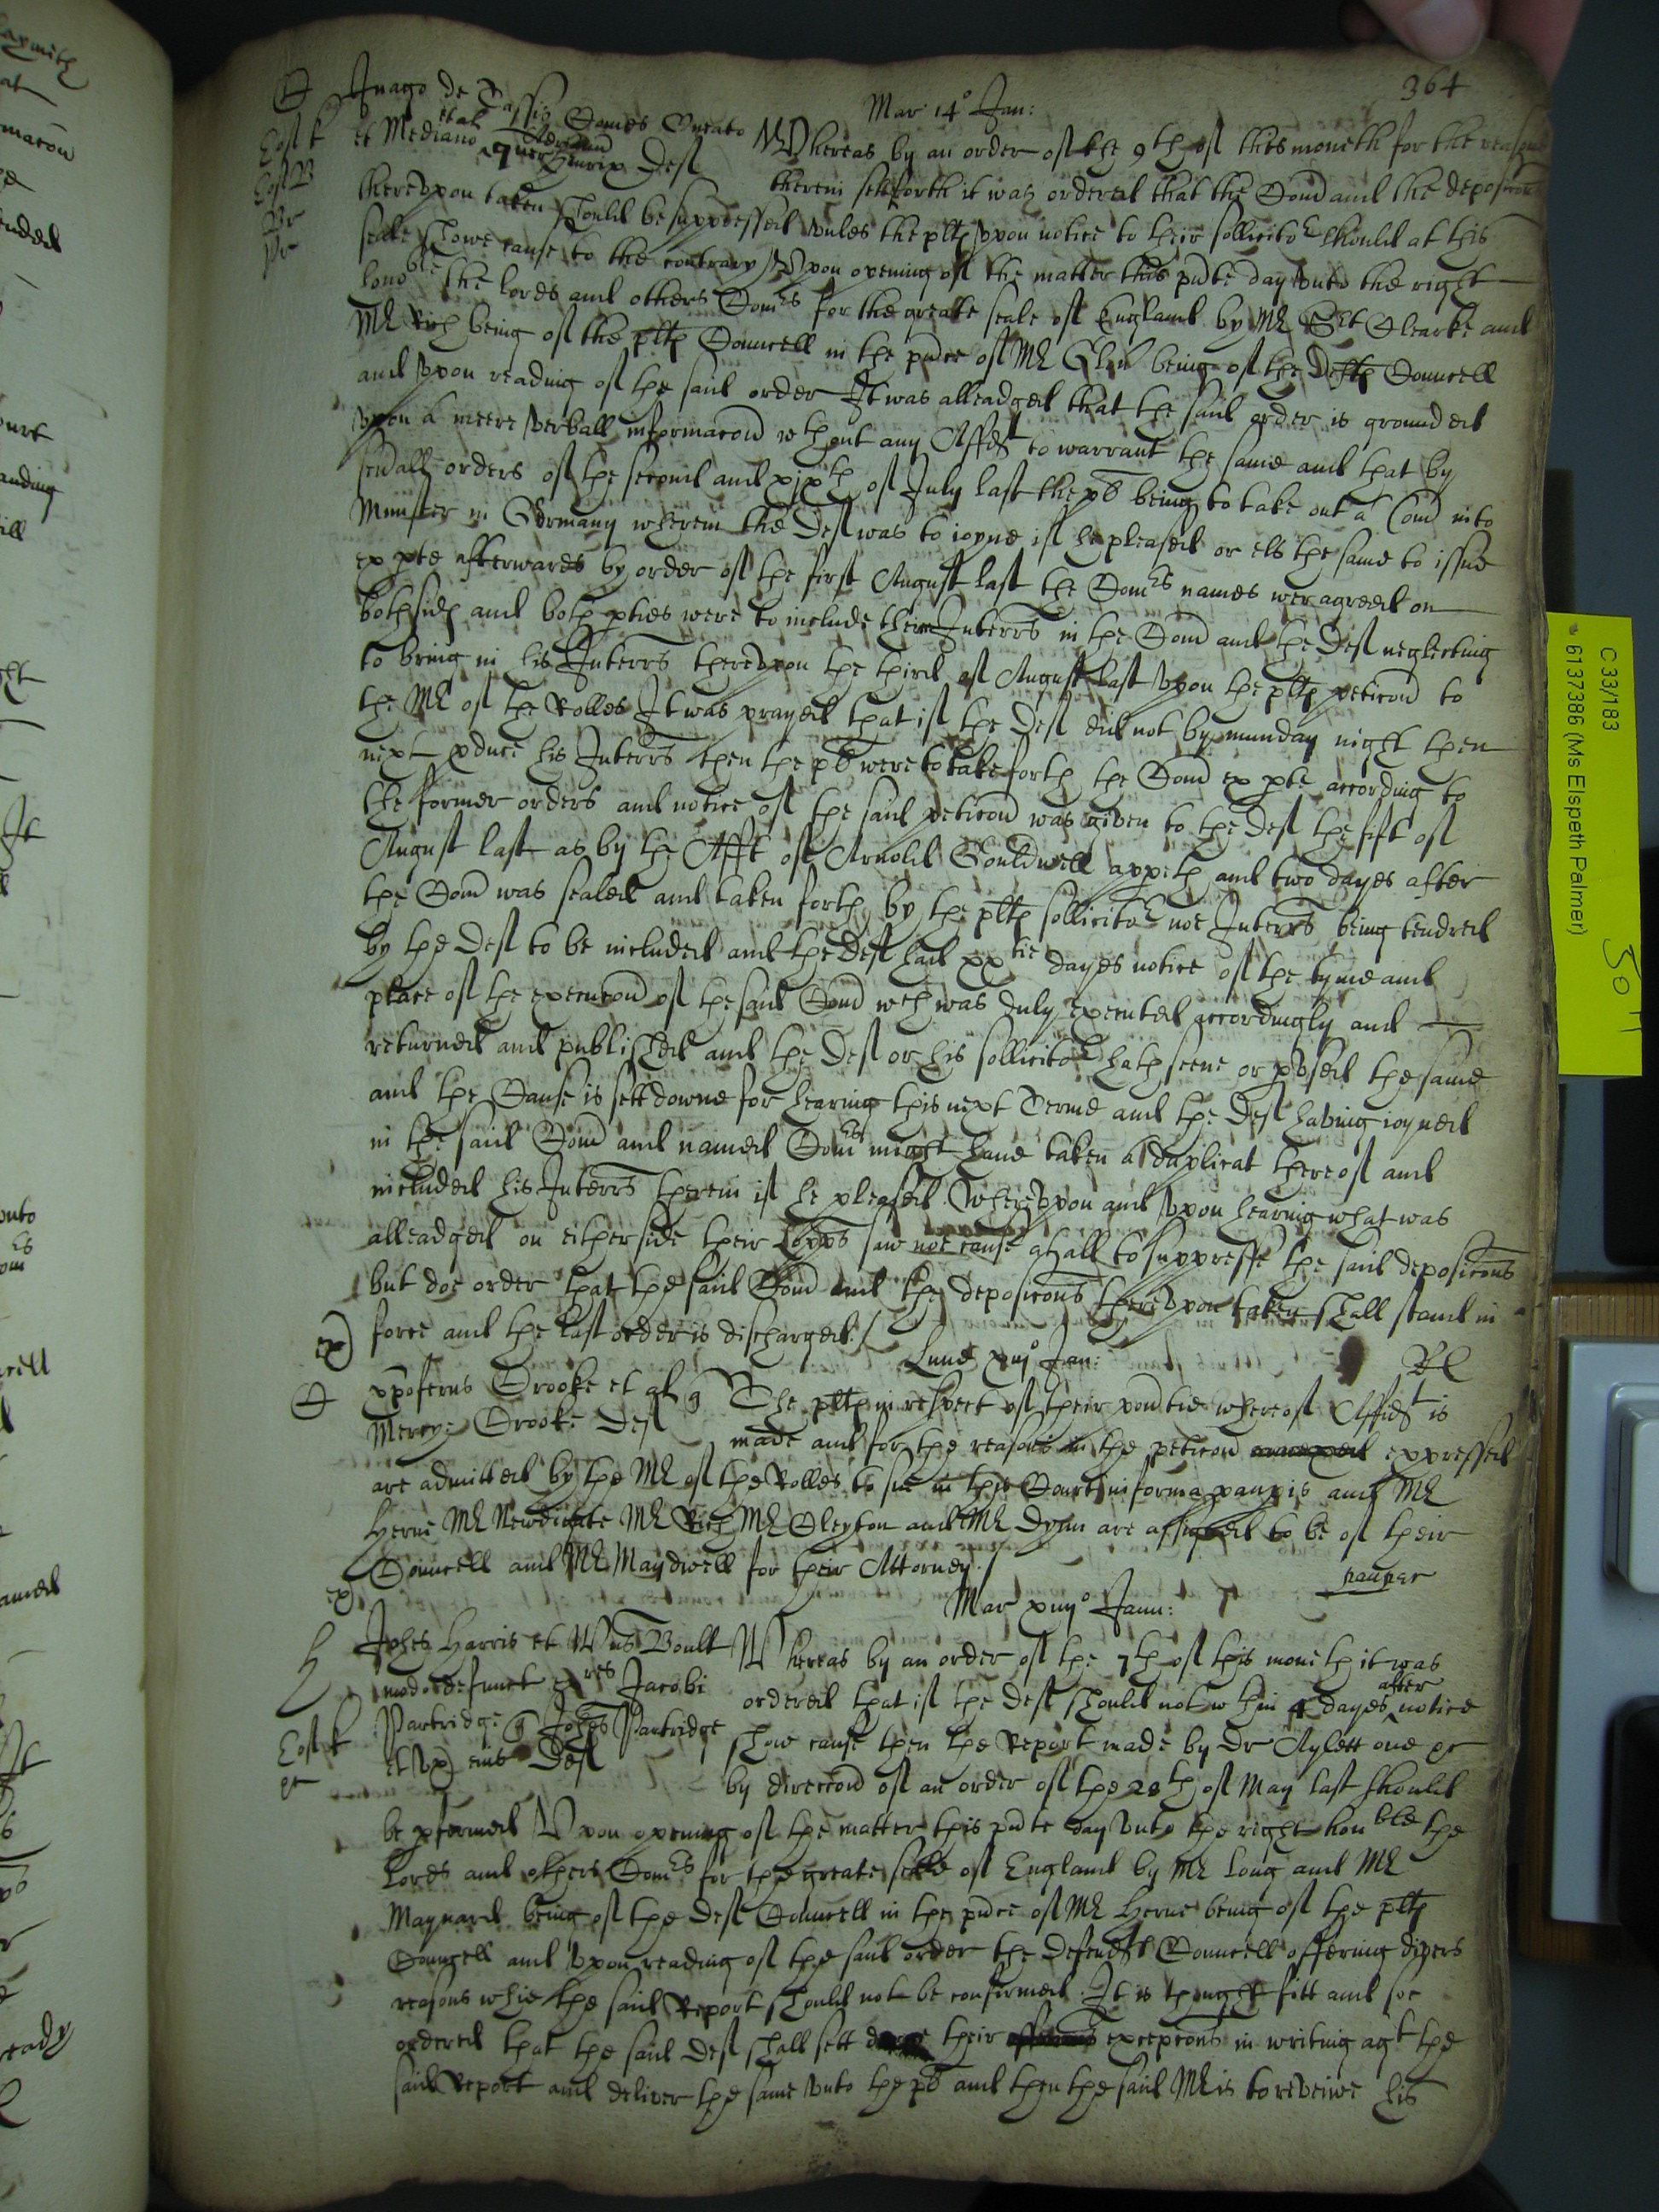 364
Mar 14° Jan:
Jnago de Tassis Comes Oneato
et al
et Mediano quer Adrian
Henrix Deft
Whereas by an order of the 9th of this moneth for the reasons
therein sett forth it was ordered that the Comd and the deposicons
therevpon taken should be suppressed vnles the plts vpon notice to their sollicitor should at this
seale showe cause to the contrary Vpon opening of the matter this pnte day vnto the right
honoble the lordes and others Comrs for the greate seale of England by Mr Sit Clearke and
Mr Rich being of the plts Councell in the pnce of Mr Glin being of the Defts Councell
and vpon reading of the said order It was alleadged that the said order is grounded
vpon a meere verball informacon wthout any Affdt to warrant the same and that by
seuall orders of the second and xjxth of July last the pls being to take out a Comd into
Munster in Germany wherein the Deft was to ioyne if he pleased or els the same to issue
ex pte afterwards by order of the first August last the Comrs names wer agreed on
both sides and both pties were to include their Interrs in the Comd and the Deft neglecting
to bring in his Interrs therevpon the third of August last vpon the plts peticon to
the Mr of the Rolles It was prayed that if the Deft did not by munday night then
next pduce his Interrs then the pls were to take forth the Comd ex pte according to
the former orders and notice of the said peticon was given to the Deft the fift of
August last as by the Afft of Arnold Gouldwell appeth and two dayes after
the Comd was sealed and taken forth by the plts sollicitor noe Interrs being tendred
by the Deft to be included and the Deft had xxtie dayes notice of the tyme and
place of the execucon of the said Comd wch was duly executed accordingly and
returned and published and the Deft or his sollicitor hath seene or pvsed the same
and the Cause is sett downe for hearing this next Terme and the Deft having ioyned
in the said Comd and named Comrs might haue taken a duplicat thereof and
included his Interrs therein if he pleased. Wherevpon and vpon hearing what was
alleadged on either side their Lopps saw noe cause at all to suppresse the said deposicons
but doe order that the said Comd and the deposicons therevpon taken shall stand in
force and the last order is discharged./
Lune xiij° Jan:
xpoferus Crooke et al q
Mercy: Crooke Deft
The plts in respect of their poutie whereof Affidt is
made and for the reasons in the peticon expressed
are admitted by the Mr of the Rolles to sue in this Court in forma paupis and Mr
Herne Mr Newdigate Mr Rich Mr Cleyton and Mr Dynn are assigned to be of their
Councell and Mr Maydwell for their Attorney./
pauper
Mar xiiij° Janu:
Johes Harris et Wms Boult
modo defunct exres Jacobi
Partridge q Johes Partridge
et vx eius Deft
Whereas by an order of the 7th of this moneth it was
ordered that if the Deft should not wthin 4 dayes after notice
show cause then the Report made by Dr Aylett one &c
by direccon of an order of the 28th of May last should
be pformed Vpon opening of the matter this pnte day vnto the right honble the
Lords and others Comrs for the greate seale of England by Mr Long and Mr
Maynard being of the Deft Councell in the pnce of Mr Herne being of the plts
Councell and vpon reading of the said order the Defendts Councell offering divers
reasons whie the said Report should not be confirmed. It is thought fitt and soe
ordered that the said Deft shall sett downe their excepcons in writing agt the
said Report and deliver the same vnto the pls and then the said Mr is to reveiwe his
C 33/183
6137386 (Ms Elspeth Palmer)